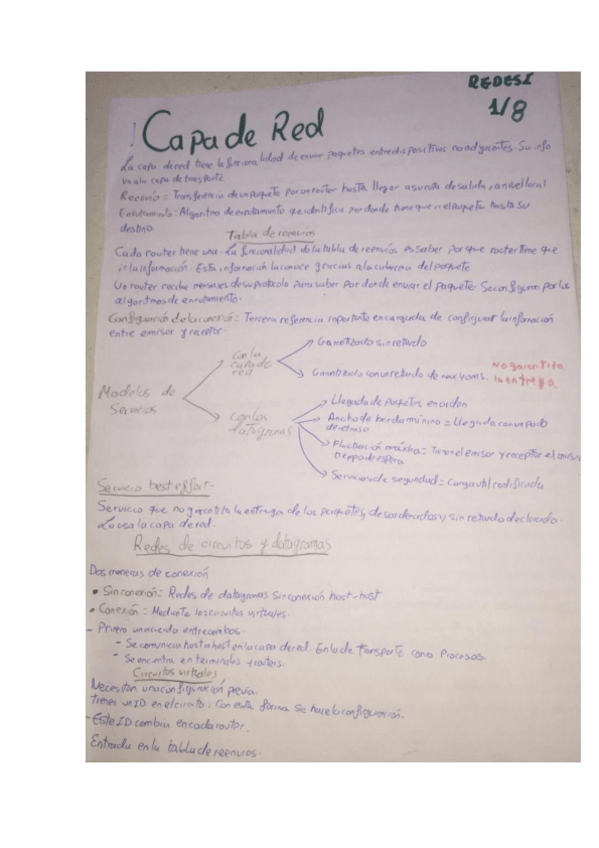 REDES I
1/8
Capa de Red
La capa de red tiene la funcionalidad de enviar paquetes entre dispositivos no adyacentes. Su info
va a la capa de transporte.
Reenvío = Transferencia de un paquete por un router hasta llegar a su ruta de salida, a nivel local
Enrutamiento = Algoritmo de enrutamiento que identifica por donde tiene que ir el paquete hasta su
destino
Tabla de reenvíos
Cada router tiene una. La funcionalidad de la tabla de reenvíos es saber por que router tiene que
ir la información. Esta información la conoce gracias a la cabecera del paquete
Un router recibe mensajes de su protocolo para saber por donde enviar el paquete. Se configuran por los
algoritmos de enrutamiento.
Configuración de la conexión = Tercera referencia importante encargada de configurar la información
entre emisor y receptor.
Modelos de
Servicios
Con la
capa de
red
Garantizado sin retardo
Garantizado con retardo de max
No garantiza
la entrega
Con los
datagramas
Llegada de paquetes en orden
Ancho de banda mínimo = Llegada con un poco
de retraso
Fluctuación máxima = Tienen el emisor y receptor el mismo
tiempo de espera
Servicios de seguridad = Carga util codificada
Servicio best effort =
Servicio que no garantiza la entrega de los paquetes, desordenados y sin retardo declarado.
Lo usa la capa de red.
Redes de circuitos y datagramas
Dos maneras de conexión
• Sin conexión = Redes de datagramas sin conexión host-host
• Conexión = Mediante los circuitos virtuales.
- Primero un acuerdo entre ambos.
- Se comunican host a host en la capa de red. En la de transporte como procesos.
- Se encuentra en terminales y routers.
Circuitos virtuales
Necesitan una configuración previa.
Tienen un ID en el circuito. Con esta forma se hace la configuración.
- Este ID cambia en cada router.
Entrada en la tabla de reenvíos.